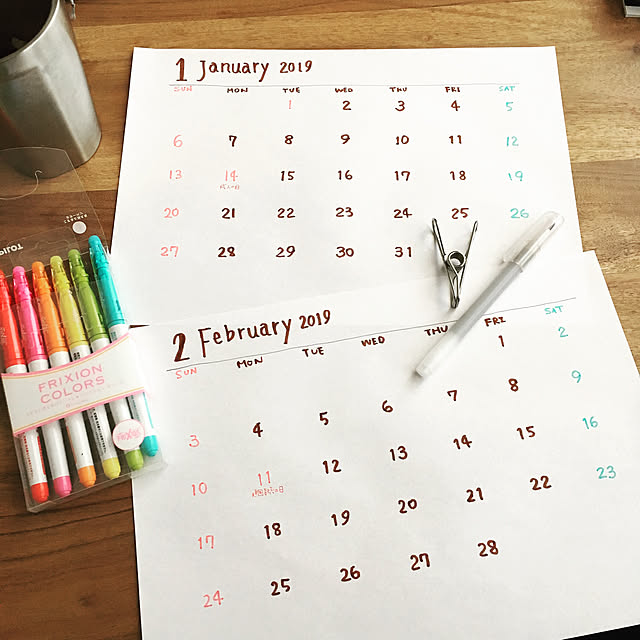 1 January 2019
SUN MON TUE WED THU FRI SAT
1 2 3 4 5
6 7 8 9 10 11 12
13 14 15 16 17 18 19
成人の日
20 21 22 23 24 25 26
27 28 29 30 31
2 February 2019
SUN MON TUE WED THU FRI SAT
1 2
3 4 5 6 7 8 9
10 11 12 13 14 15 16
建国記念の日
17 18 19 20 21 22 23
24 25 26 27 28
PILOT
FRIXION
COLORS